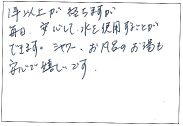 1年以上が経ちますが
毎日、安心して水を使用することが
できます。シャワー、お風呂のお湯も
安心で嬉しいです。